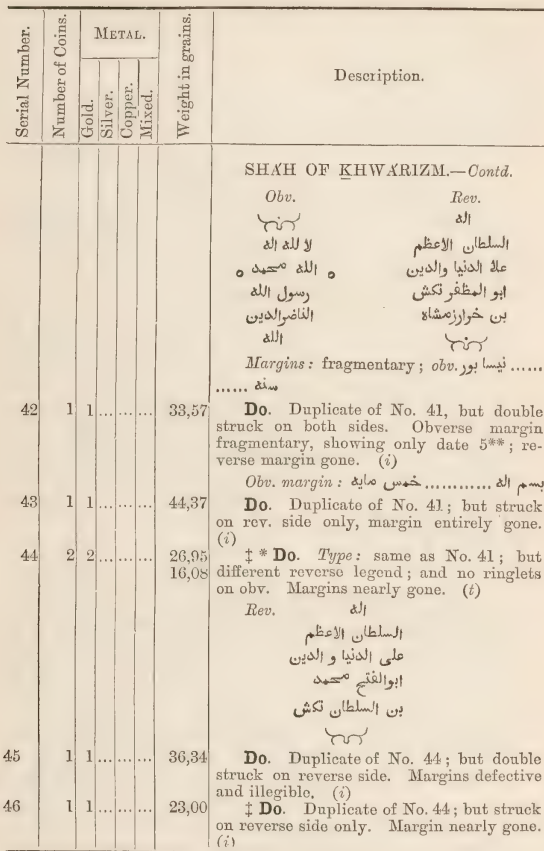 Serial Number. Number of Coins. METAL. Weight in grains. Description.
Gold. Silver. Copper. Mixed.
SHÁH OF KHWÁRIZM.—Contd.
Obv. Rev.
اله
لا لله اله السلطان الاعظم
الله محمد علا الدنيا والدين
رسول الله ابو المظفر تكش
الناصرالدين بن خوارزمشاه
الله
Margins: fragmentary; obv. نيسا بور ......
...... سنة ......
42 1 1 ... ... ... 33,57 Do. Duplicate of No. 41, but double
struck on both sides. Obverse margin
fragmentary, showing only date 5**; re-
verse margin gone. (i)
Obv. margin : بسم اله ............ خمس مايه
43 1 1 ... ... ... 44,37 Do. Duplicate of No. 41; but struck
on rev. side only, margin entirely gone.
(i)
44 2 2 ... ... ... 26,95 ‡ * Do. Type: same as No. 41; but
16,08 different reverse legend; and no ringlets
on obv. Margins nearly gone. (t)
Rev. اله
السلطان الاعظم
على الدنيا و الدين
ابوالفتح محمد
بن السلطان تكش
45 1 1 ... ... ... 36,34 Do. Duplicate of No. 44; but double
struck on reverse side. Margins defective
and illegible. (i)
46 1 1 ... ... ... 23,00 ‡ Do. Duplicate of No. 44; but struck
on reverse side only. Margin nearly gone.
(i)